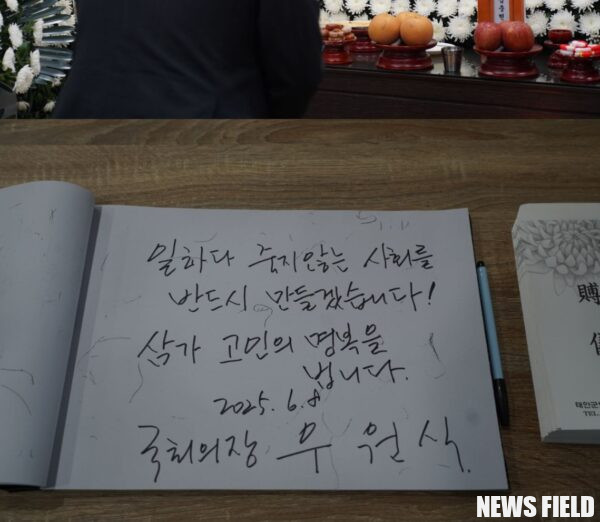 일하다 죽지않는 사회를
반드시 만들겠습니다!
삼가 고인의 명복을
빕니다.
2025. 6. 8
국회의장 우 원 식.
賻
태안군
TEL.
NEWS FIELD